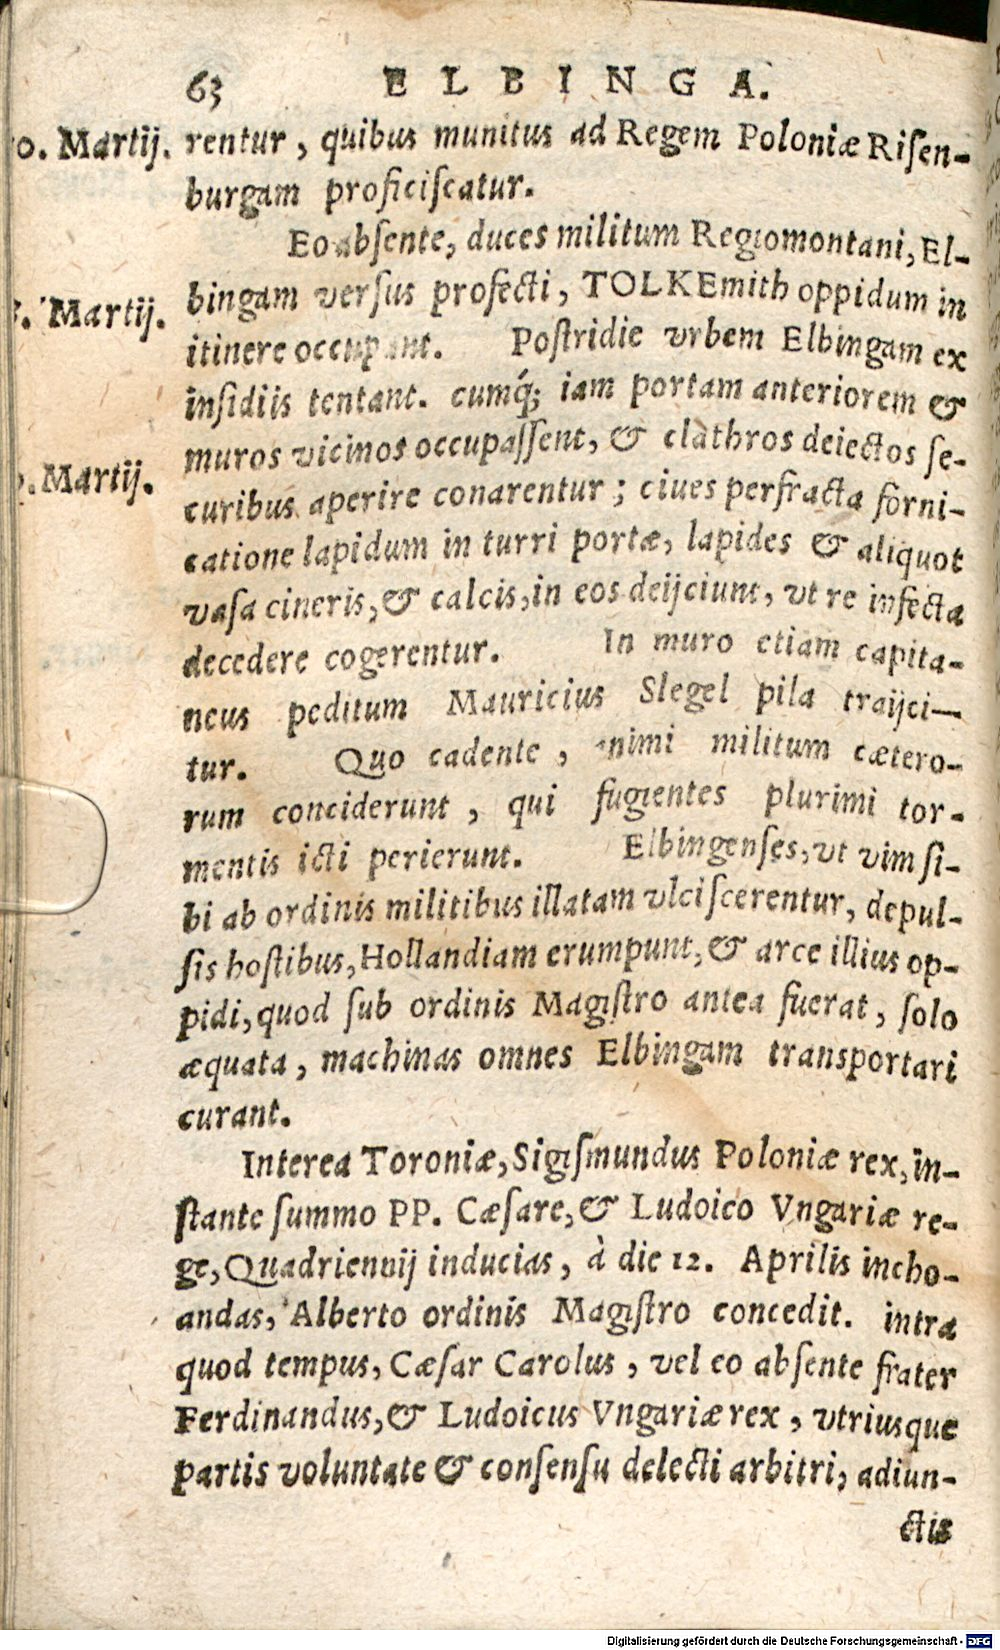 63 ELBINGA.
0. Martij. rentur, quibus munitus ad Regem Poloniæ Riſen-
burgam proficiſcatur.
Eo abſente, duces militum Regiomontani, El-
bingam verſus profecti, TOLKEmith oppidum in
Martij.
itinere occupant. Poſtridie vrbem Elbingam ex
inſidiis tentant. cumq́; iam portam anteriorem &
muros vicinos occupaſſent, & clathros deiectos ſe-
Martij.
curibus aperire conarentur; ciues perfracta forni-
catione lapidum in turri portæ, lapides & aliquot
vaſa cineris, & calcis, in eos deijciunt, vt re infecta
decedere cogerentur. In muro etiam capita-
neus peditum Mauricius Slegel pila traijci-
tur. Quo cadente, animi militum cætero-
rum conciderunt, qui fugientes plurimi tor-
mentis icti perierunt. Elbingenſes, vt vim ſi-
bi ab ordinis militibus illatam vlciſcerentur, depul-
ſis hoſtibus, Hollandiam erumpunt, & arce illius op-
pidi, quod ſub ordinis Magiſtro antea fuerat, ſolo
æquata, machinas omnes Elbingam transportari
curant.
Interea Toroniæ, Sigiſmundus Poloniæ rex, in-
ſtante ſummo PP. Cæſare, & Ludoico Vngariæ re-
ge, Quadriennij inducias, à die 12. Aprilis incho-
andas, Alberto ordinis Magiſtro concedit. intra
quod tempus, Cæſar Carolus, vel eo abſente frater
Ferdinandus, & Ludoicus Vngariæ rex, vtriusque
partis voluntate & conſenſu delecti arbitri, adiun-
ctis
Digitalisierung gefördert durch die Deutsche Forschungsgemeinschaft - DFG